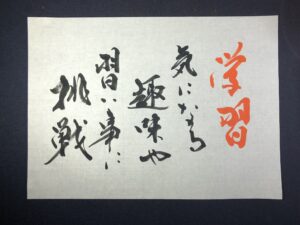 学習
気になる
趣味や
習い事に
挑戦